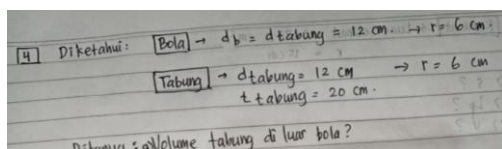 4 Diketahui : Bola → db = dtabung = 12 cm. → r = 6 cm.
Tabung → dtabung = 12 cm → r = 6 cm
t tabung = 20 cm.
Volume tabung di luar bola?